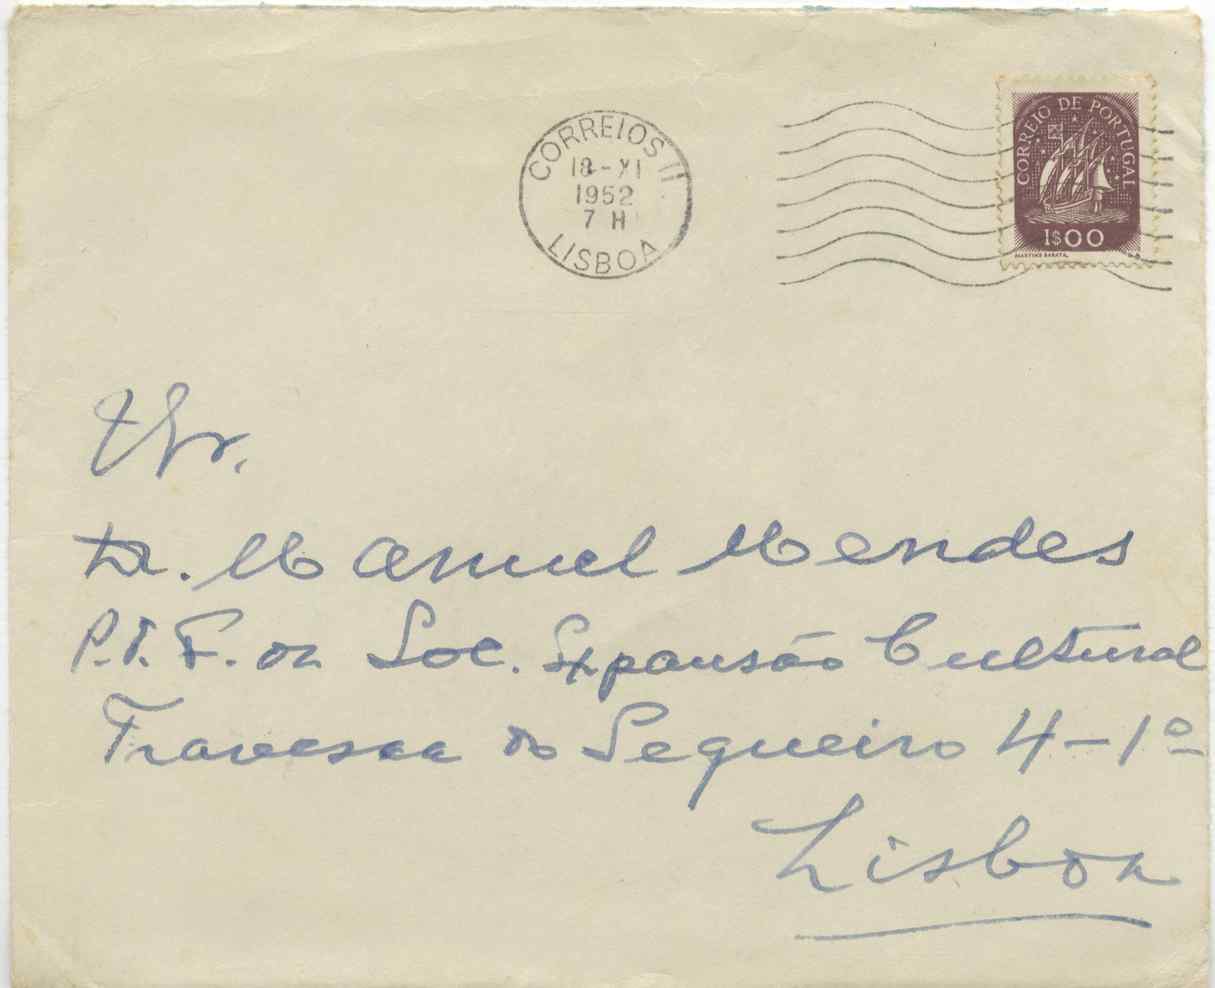 CORREIOS 11
18-XI
1952
7 H
LISBOA
CORREIO DE PORTUGAL
1$00
MARTINS BARATA
Sr.
Dr. Manuel Mendes
P.I.F. da Soc. Expansão Cultural
Travessa do Sequeiro 4-1º
Lisboa